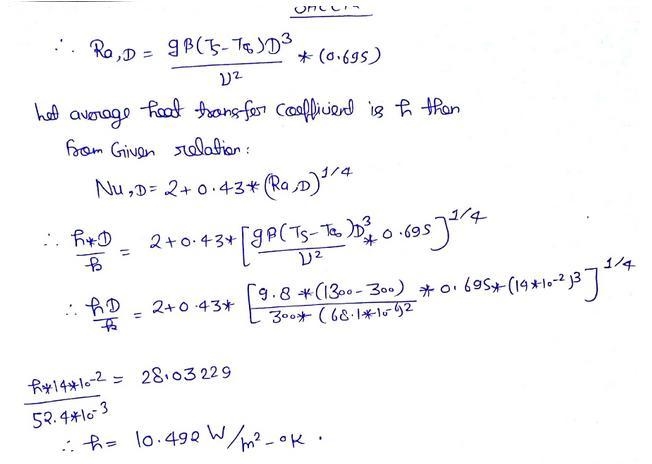 ∴ Ra,D = gβ(Ts-T∞)D³ / ν² * (0.695)
let average heat transfer coefficient is h then
from Given relation:
Nu,D = 2+0.43*(Ra,D)^1/4
∴ h*D / k = 2+0.43*[gβ(Ts-T∞)D³ / ν² * 0.695]^1/4
∴ hD / k = 2+0.43* [9.8*(1300-300) / 300*(68.1*10⁻⁶)² * 0.695*(14*10⁻²)³]^1/4
h*14*10⁻² / 52.4*10⁻³ = 28.03229
∴ h = 10.492 W/m²-°K.